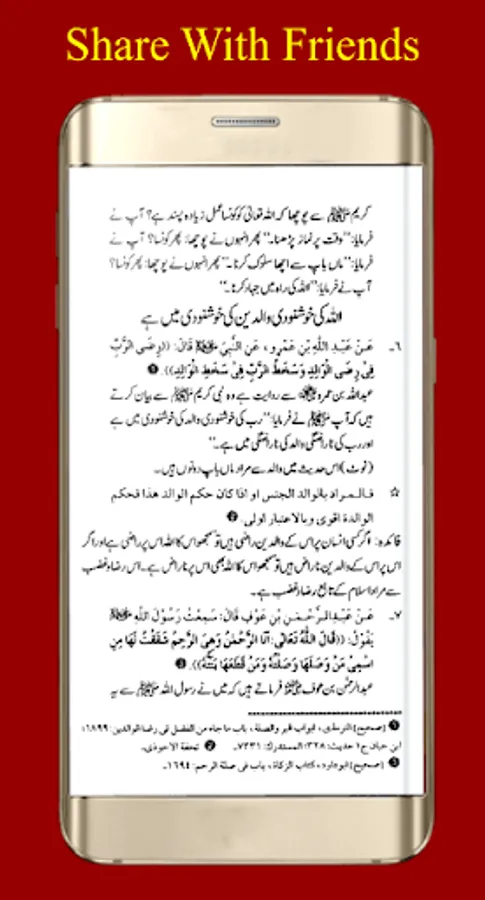 Share With Friends
کریم ﷺ سے پوچھا کہ اللہ تعالیٰ کو کونسا عمل زیادہ پسند ہے؟ آپ نے
فرمایا: ’’وقت پر نماز پڑھنا۔‘‘ پھر انہوں نے پوچھا: پھر کونسا؟ آپ نے
فرمایا: ’’ماں باپ سے اچھا سلوک کرنا۔‘‘ پھر انہوں نے پوچھا: پھر کونسا؟
آپ نے فرمایا: ’’اللہ کی راہ میں جہاد کرنا۔‘‘
اللہ کی خوشنودی والدین کی خوشنودی میں ہے
٦۔ عَنْ عَبْدِ اللّٰهِ بْنِ عَمْرٍو، عَنِ النَّبِيِّ ﷺ قَالَ: ((رِضَى الرَّبِّ
فِيْ رِضَى الْوَالِدِ وَسَخَطُ الرَّبِّ فِيْ سَخَطِ الْوَالِدِ)). ❶
عبداللہ بن عمرو سے روایت ہے وہ نبی کریم ﷺ سے بیان کرتے
ہیں کہ آپ ﷺ نے فرمایا: ’’رب کی خوشنودی والد کی خوشنودی میں ہے
اور رب کی ناراضگی والد کی ناراضگی میں ہے۔‘‘
(نوٹ) اس حدیث میں والد سے مراد ماں باپ دونوں ہیں۔
☆ فالمراد بالوالد الجنس او اذا كان حكم الوالد هذا فحكم
الوالدة اقوى وبالاعتبار اولى. ❷
فائدہ: اگر کسی انسان پر اس کے والدین راضی ہیں تو سمجھو اس کا اللہ اس پر راضی ہے اور اگر
اس پر اس کے والدین ناراض ہیں تو سمجھو اس کا اللہ بھی اس پر ناراض ہے۔ اس رضا و غضب
سے مراد اسلام کے تابع رضا و غضب ہے۔
٧۔ عَنْ عَبْدِالرَّحْمٰنِ بْنِ عَوْفٍ قَالَ: سَمِعْتُ رَسُوْلَ اللّٰهِ ﷺ
يَقُوْلُ: ((قَالَ اللّٰهُ تَعَالٰى: اَنَا الرَّحْمٰنُ وَهِيَ الرَّحِمُ شَقَقْتُ لَهَا مِنِ
اسْمِيْ مَنْ وَصَلَهَا وَصَلْتُهُ وَمَنْ قَطَعَهَا بَتَتُّهُ)). ❸
عبدالرحمٰن بن عوف فرماتے ہیں کہ میں نے رسول اللہ ﷺ سے یہ
❶ [صحيح] الترمذى، ابواب البر والصلة، باب ما جاء من الفضل فى رضا الوالدين: ١٨٩٩؛
ابن حبان ج١ حديث: ٣٢٨؛ المستدرك: ٧٢٣١۔ ❷ تحفة الاحوذى.
❸ [صحيح] ابوداود، كتاب الزكاة، باب فى صلة الرحم: ١٦٩٤۔